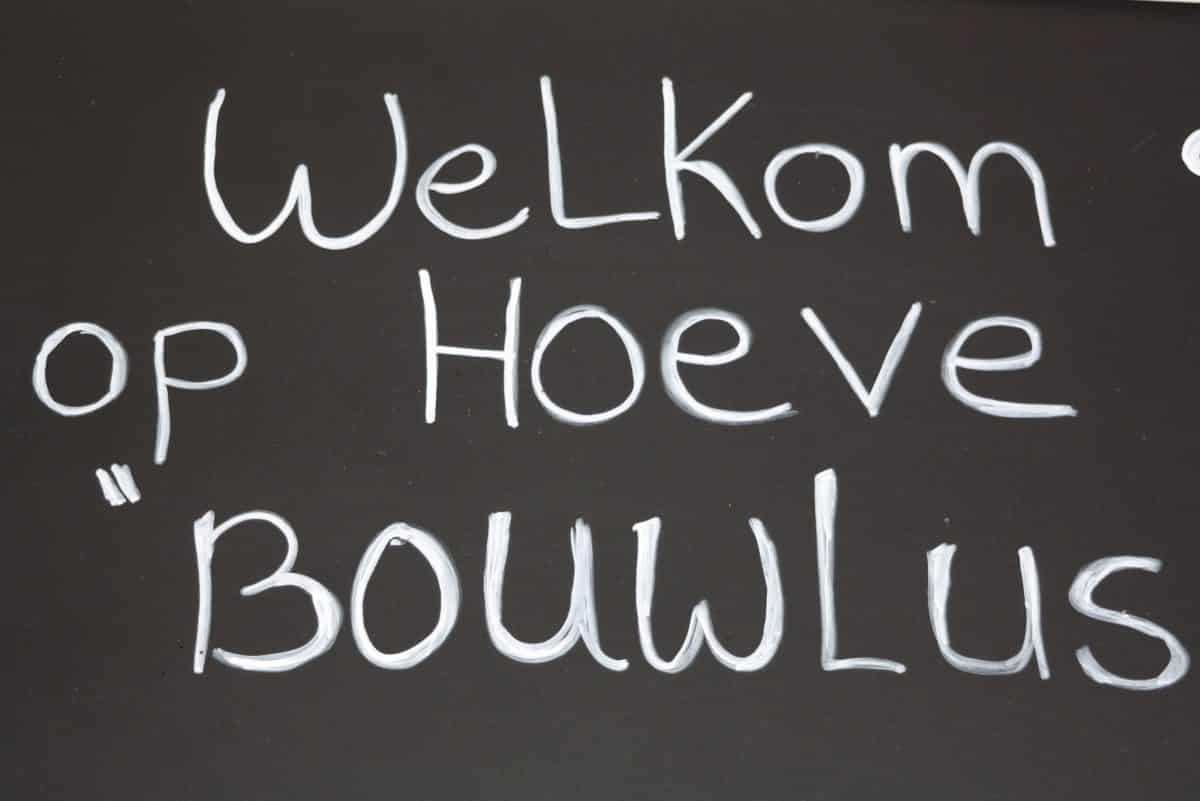 WeLKom
op Hoeve
"BOUWLUS